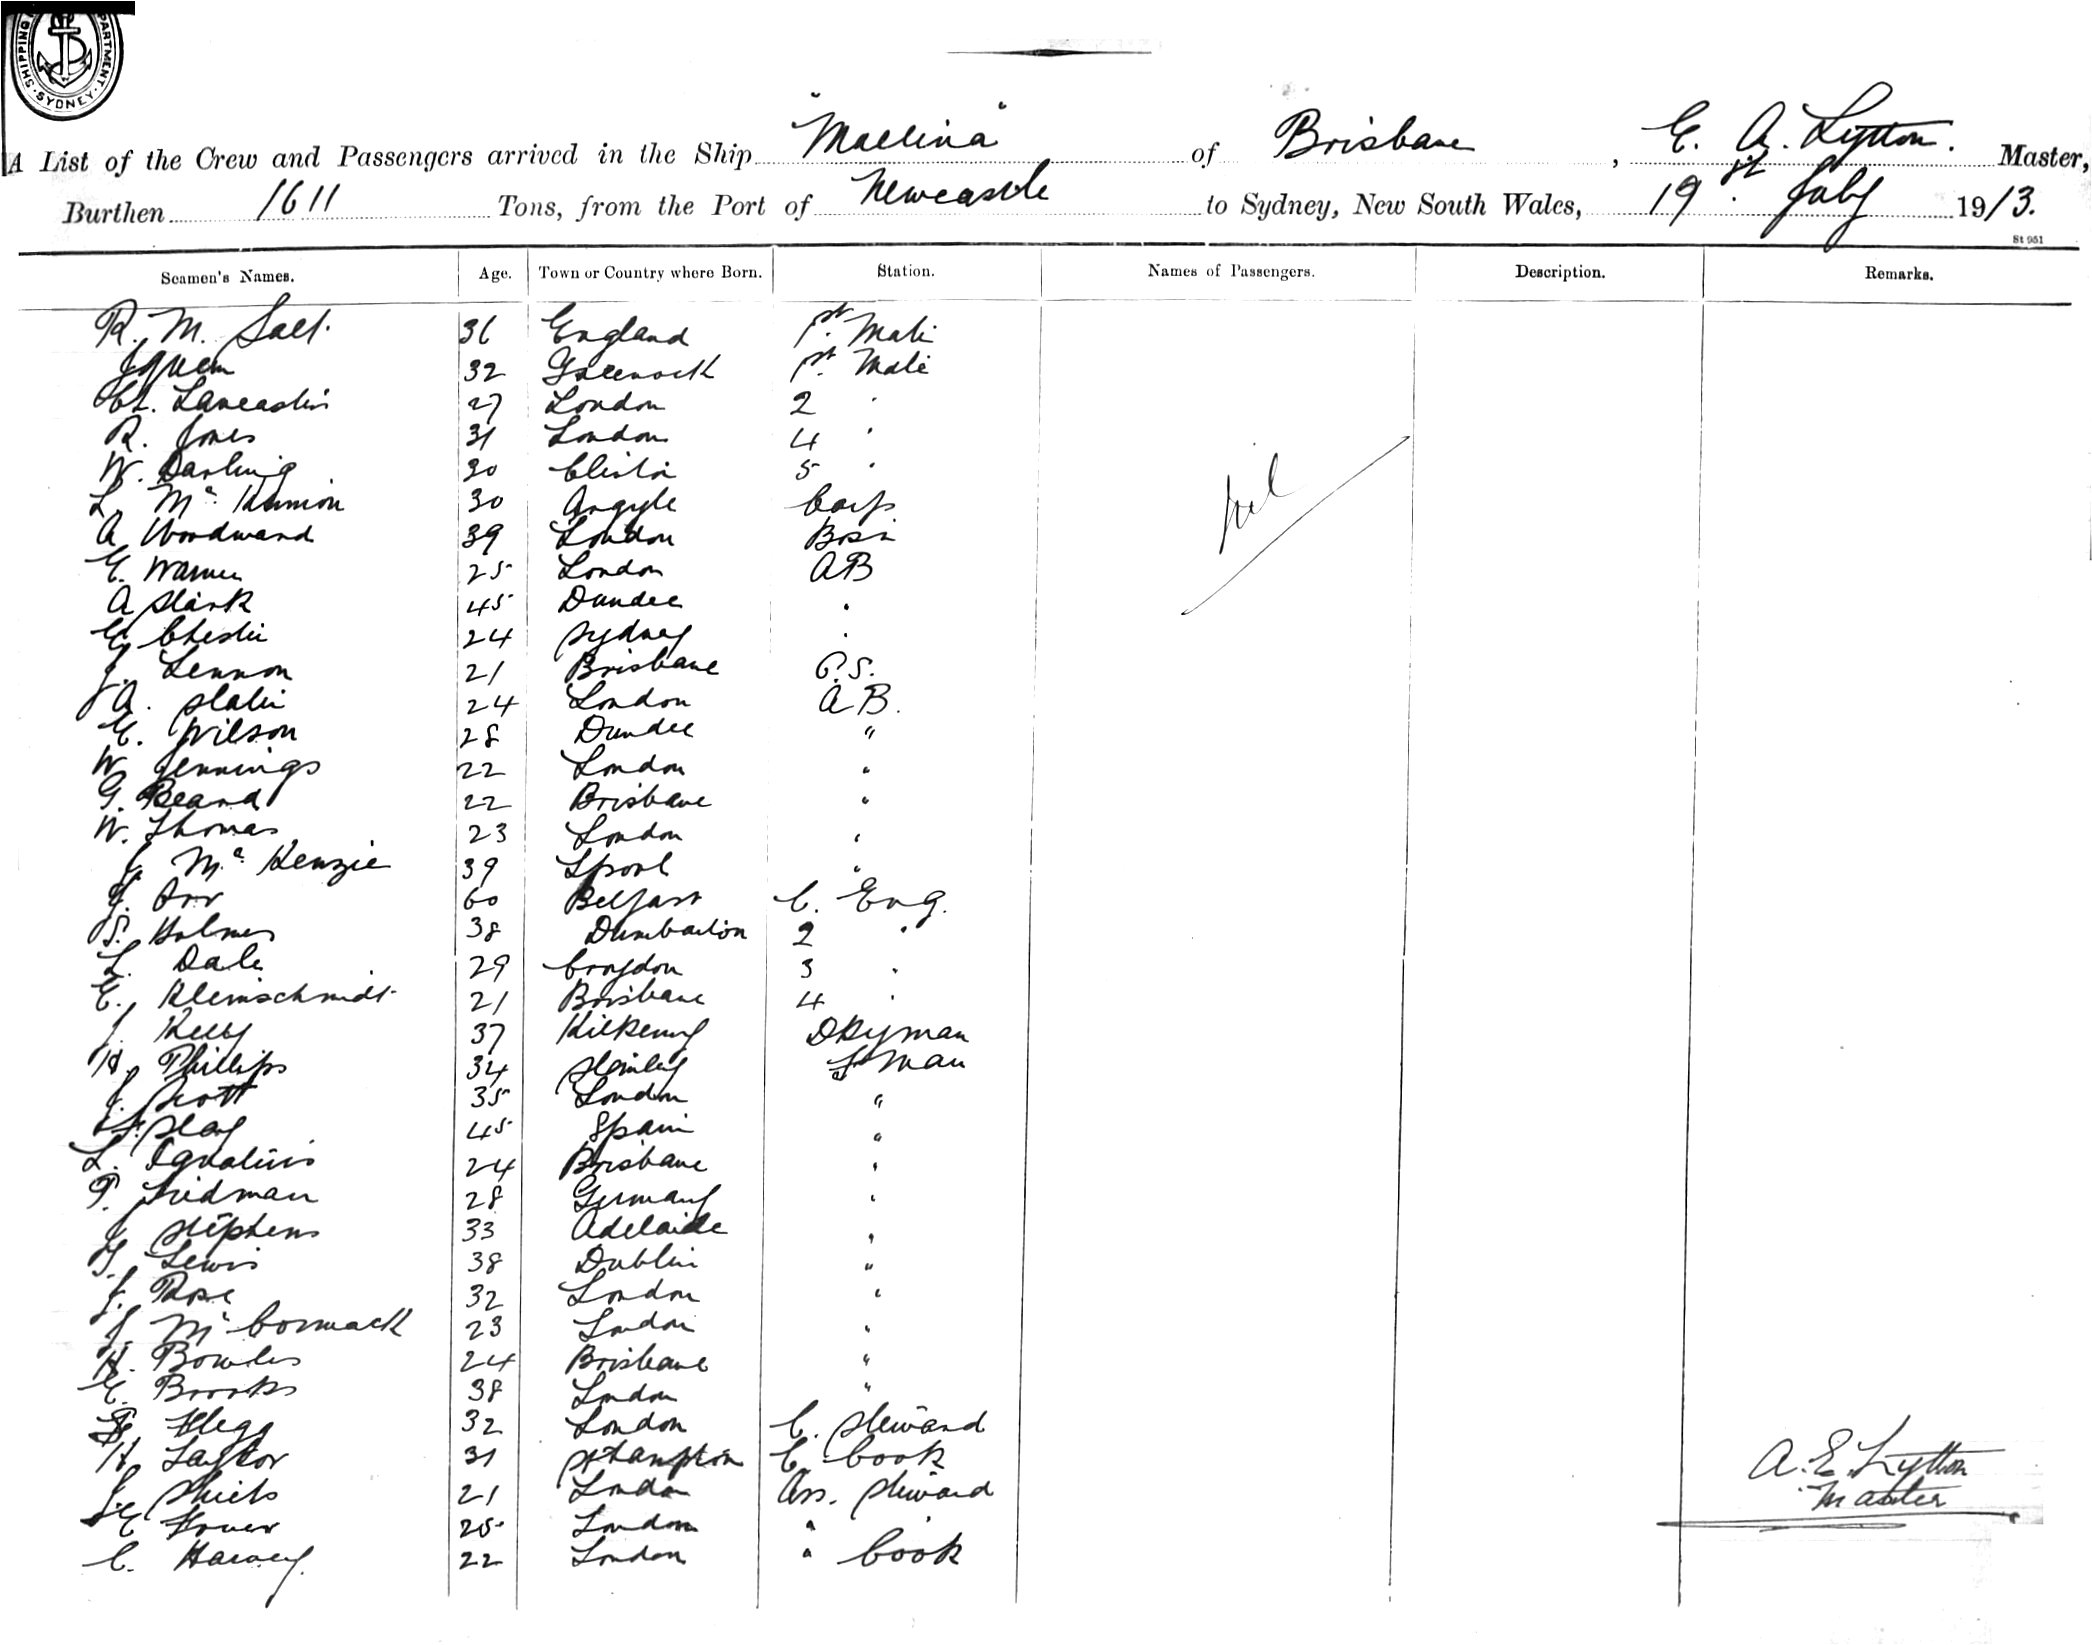 SHIPPING DEPARTMENT SYDNEY
A List of the Crew and Passengers arrived in the Ship "Mallina" of Brisbane, E. A. Lytton. Master,
Burthen 1611 Tons, from the Port of Newcastle to Sydney, New South Wales, 19 July 1913.
St 951
Seamen's Names. Age. Town or Country where Born. Station. Names of Passengers. Description. Remarks.
R. M. Salt 36 England 1st Mate
32 Greenock 1st Mate
Lancaster 27 London 2 "
R. Jones 31 London 4 "
W. Darling 30 5 "
L. Mc Kinnon 30 Argyle Carp
nil
A Woodward 39 London Bosn
E. Warner 25 London AB
A Stark 45 Dundee "
Chester 24 Sydney "
J. Lennon 21 Brisbane O.S.
A. Slater 24 London A B.
E. Wilson 28 Dundee "
W Jennings 22 London "
G. Beard 22 Brisbane "
W. Thomas 23 London "
J Mc Kenzie 39 Lpool "
J. Orr 60 Belfast C. Eng.
S. Holmes 38 Dumbarton 2 "
L. Dale 29 Croydon 3 "
E. Kleinschmidt 21 Brisbane 4 "
J. Kelly 37 Kilkenny Dkyman
H. Phillips 34 F man
J. Scott 35 London "
45 Spain "
L. Ignatius 24 Brisbane "
P. Fridman 28 Germany "
J Stephens 33 Adelaide "
G. Lewis 38 Dublin "
J. Rose 32 London "
J. Mc Cormack 23 London "
H. Bowles 24 Brisbane "
E. Brooks 38 London "
Flegg 32 London C. Steward
H. Taylor 31 Sthampton C. Cook
A. E. Lytton
Master
J. Shiels 21 London Ass. Steward
25 London " "
C. Harvey. 22 London " Cook